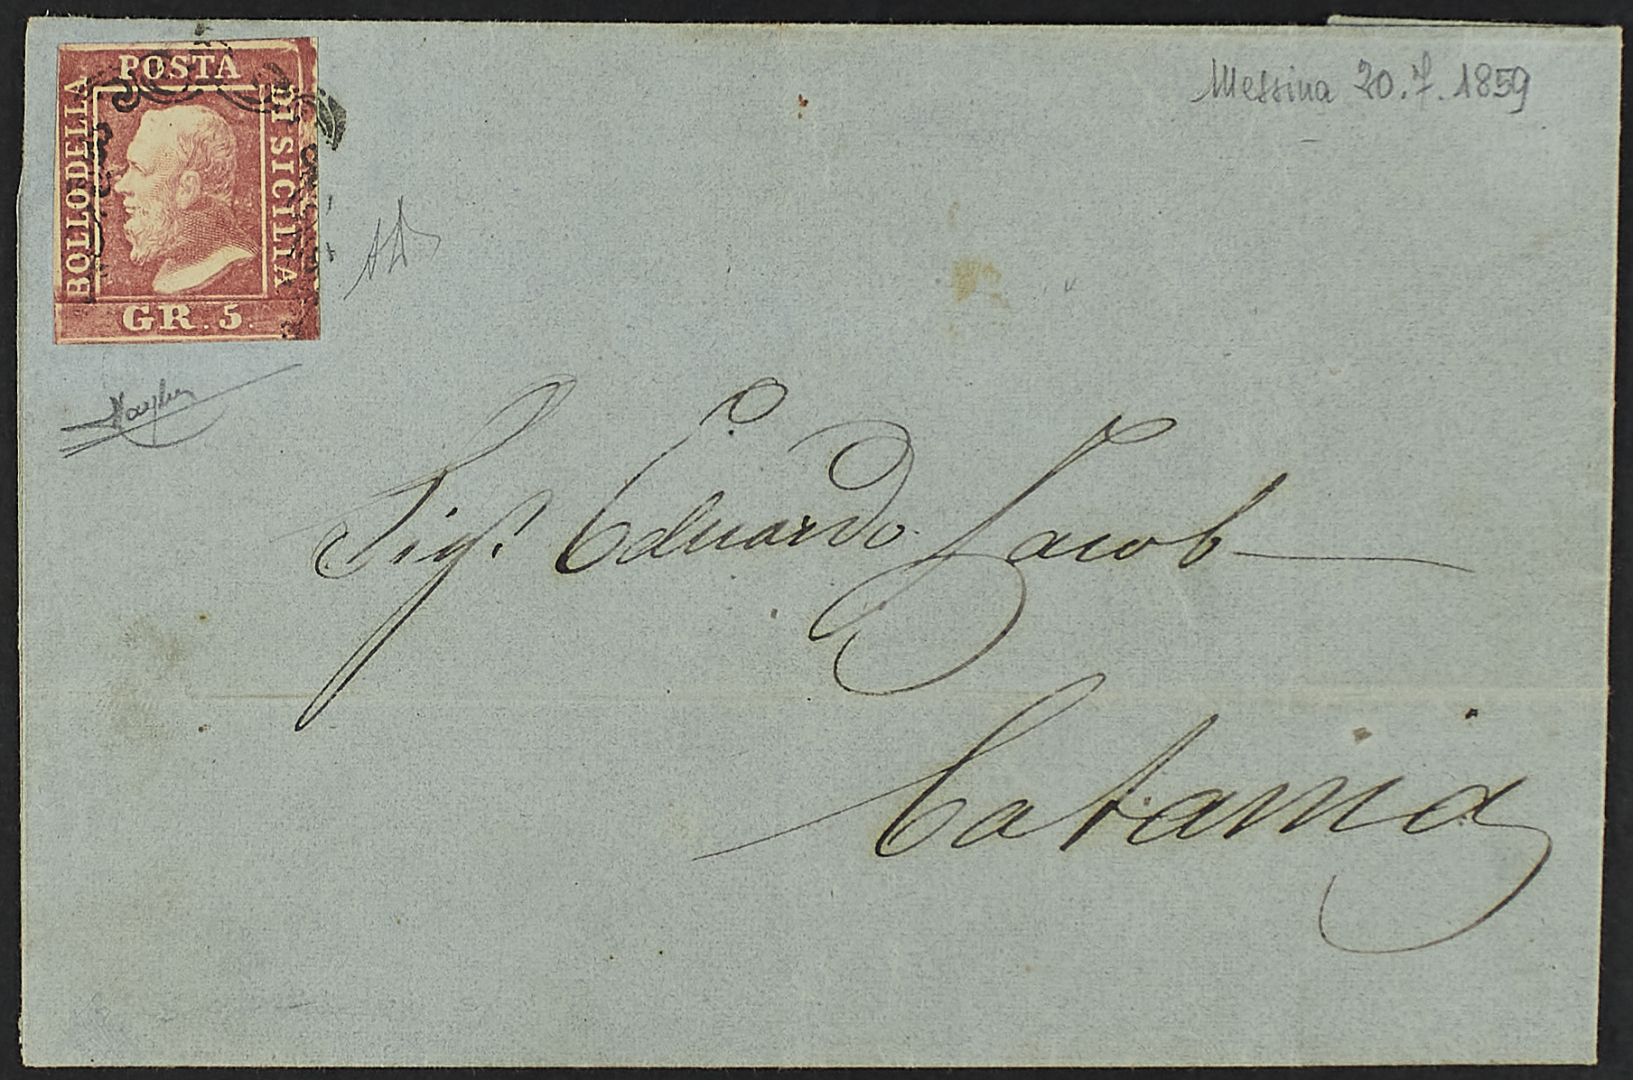 POSTA
BOLLO DELLA
DI SICILIA
GR. 5.
Messina 20. 7. 1859
Sigr. Eduardo Jacob
Catania